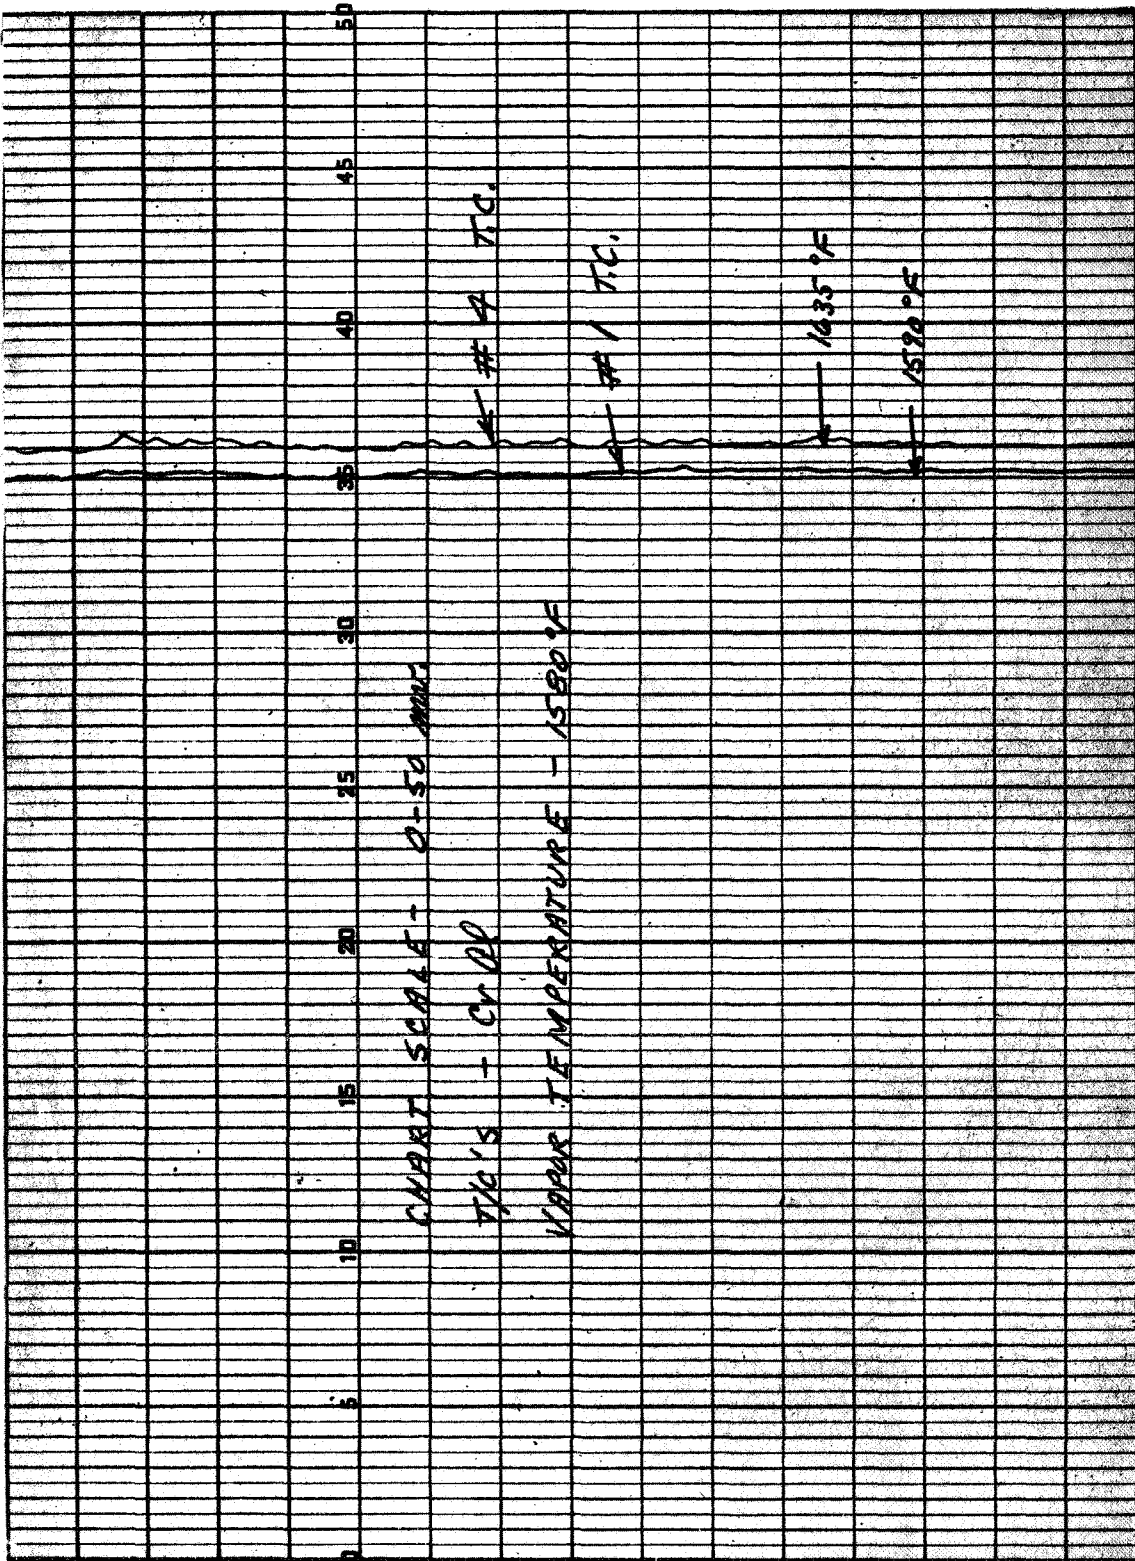 0 5 10 15 20 25 30 35 40 45 50
CHART SCALE - 0-50 mv.
T/C'S - Cr Al
VAPOR TEMPERATURE - 1580°F
# 4 T.C.
# 1 T.C.
1635°F
1590°F